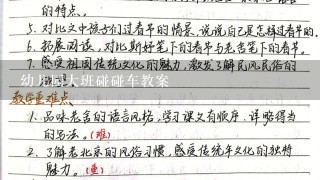 的特点。
5. 对比文中孩子们过春节的情景,说说自己是怎样过春节的。
6. 拓展阅读,对比斯好笔下的春节与老舍笔下的春节。
7. 感受祖国传统文化的魅力,激发了解民风民俗的
幼儿园大班碰碰车教案
教学重难点
1. 品味老舍的语言风格,学习课文有顺序、详略得当
的写法。(难)
2. 了解老北京的风俗习惯,感受传统年文化的独特
魅力。(重)